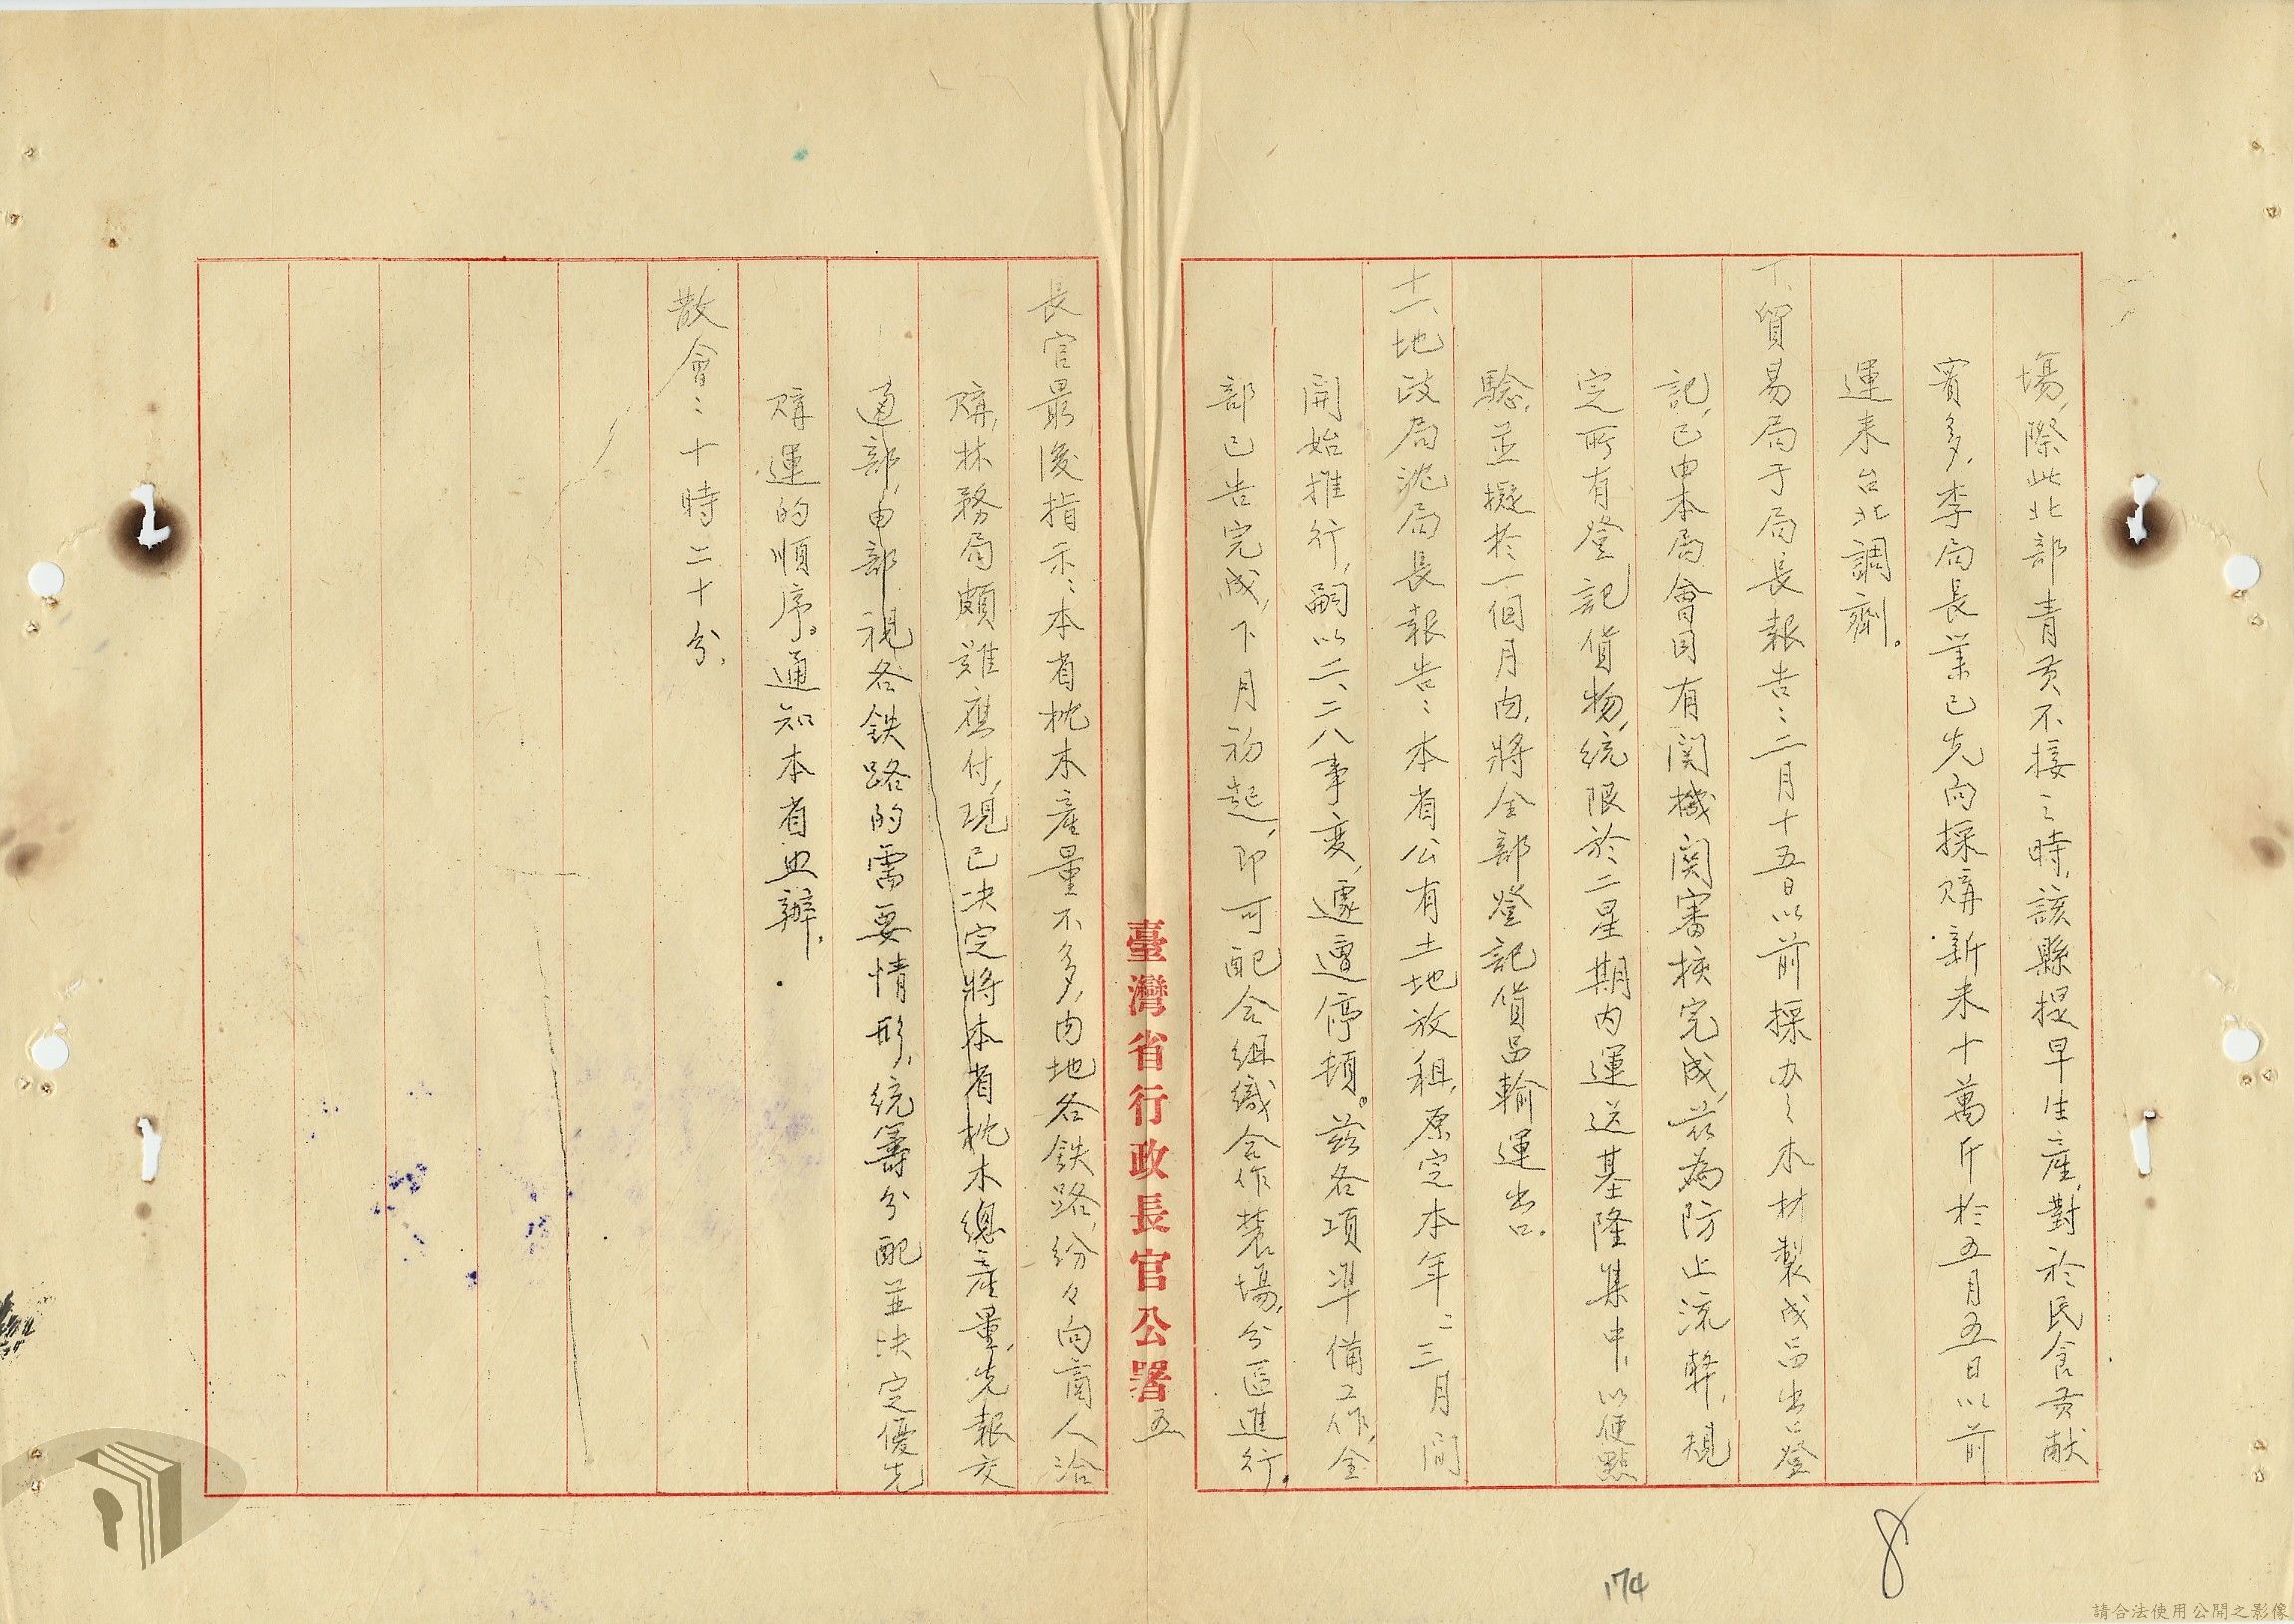 場，際此北部青黃不接之時，該縣提早生產，對於民食貢献
實多，李局長業已先向採購新米十萬斤於五月五日以前
運來台北調劑。
貿易局于局長報告：二月十五日以前採办之木材製成品出口登
記，已由本局會同有関機関審核完成，茲為防止流弊，規
定所有登記貨物，統限於二星期内運送基隆集中，以便點
驗，並擬於一個月内，將全部登記貨品輸運出口。
十一、地政局沈局長報告：本省公有土地放租，原定本年二三月間
開始推行，嗣以二、二八事変，遽遭停頓。茲各項準備工作，全
部已告完成，下月初起，即可配合組織合作農場，分區進行。
臺灣省行政長官公署
五
長官最後指示：本省枕木產量不多，内地各鉄路，紛々向商人洽
購，林務局頗難應付，現已决定將本省枕木總產量，先報交
通部，由部視各鉄路的需要情形，統籌分配並决定優先
購運的順序。通知本省照辦。
散會：十時二十分。
8
174
請合法使用公開之影像